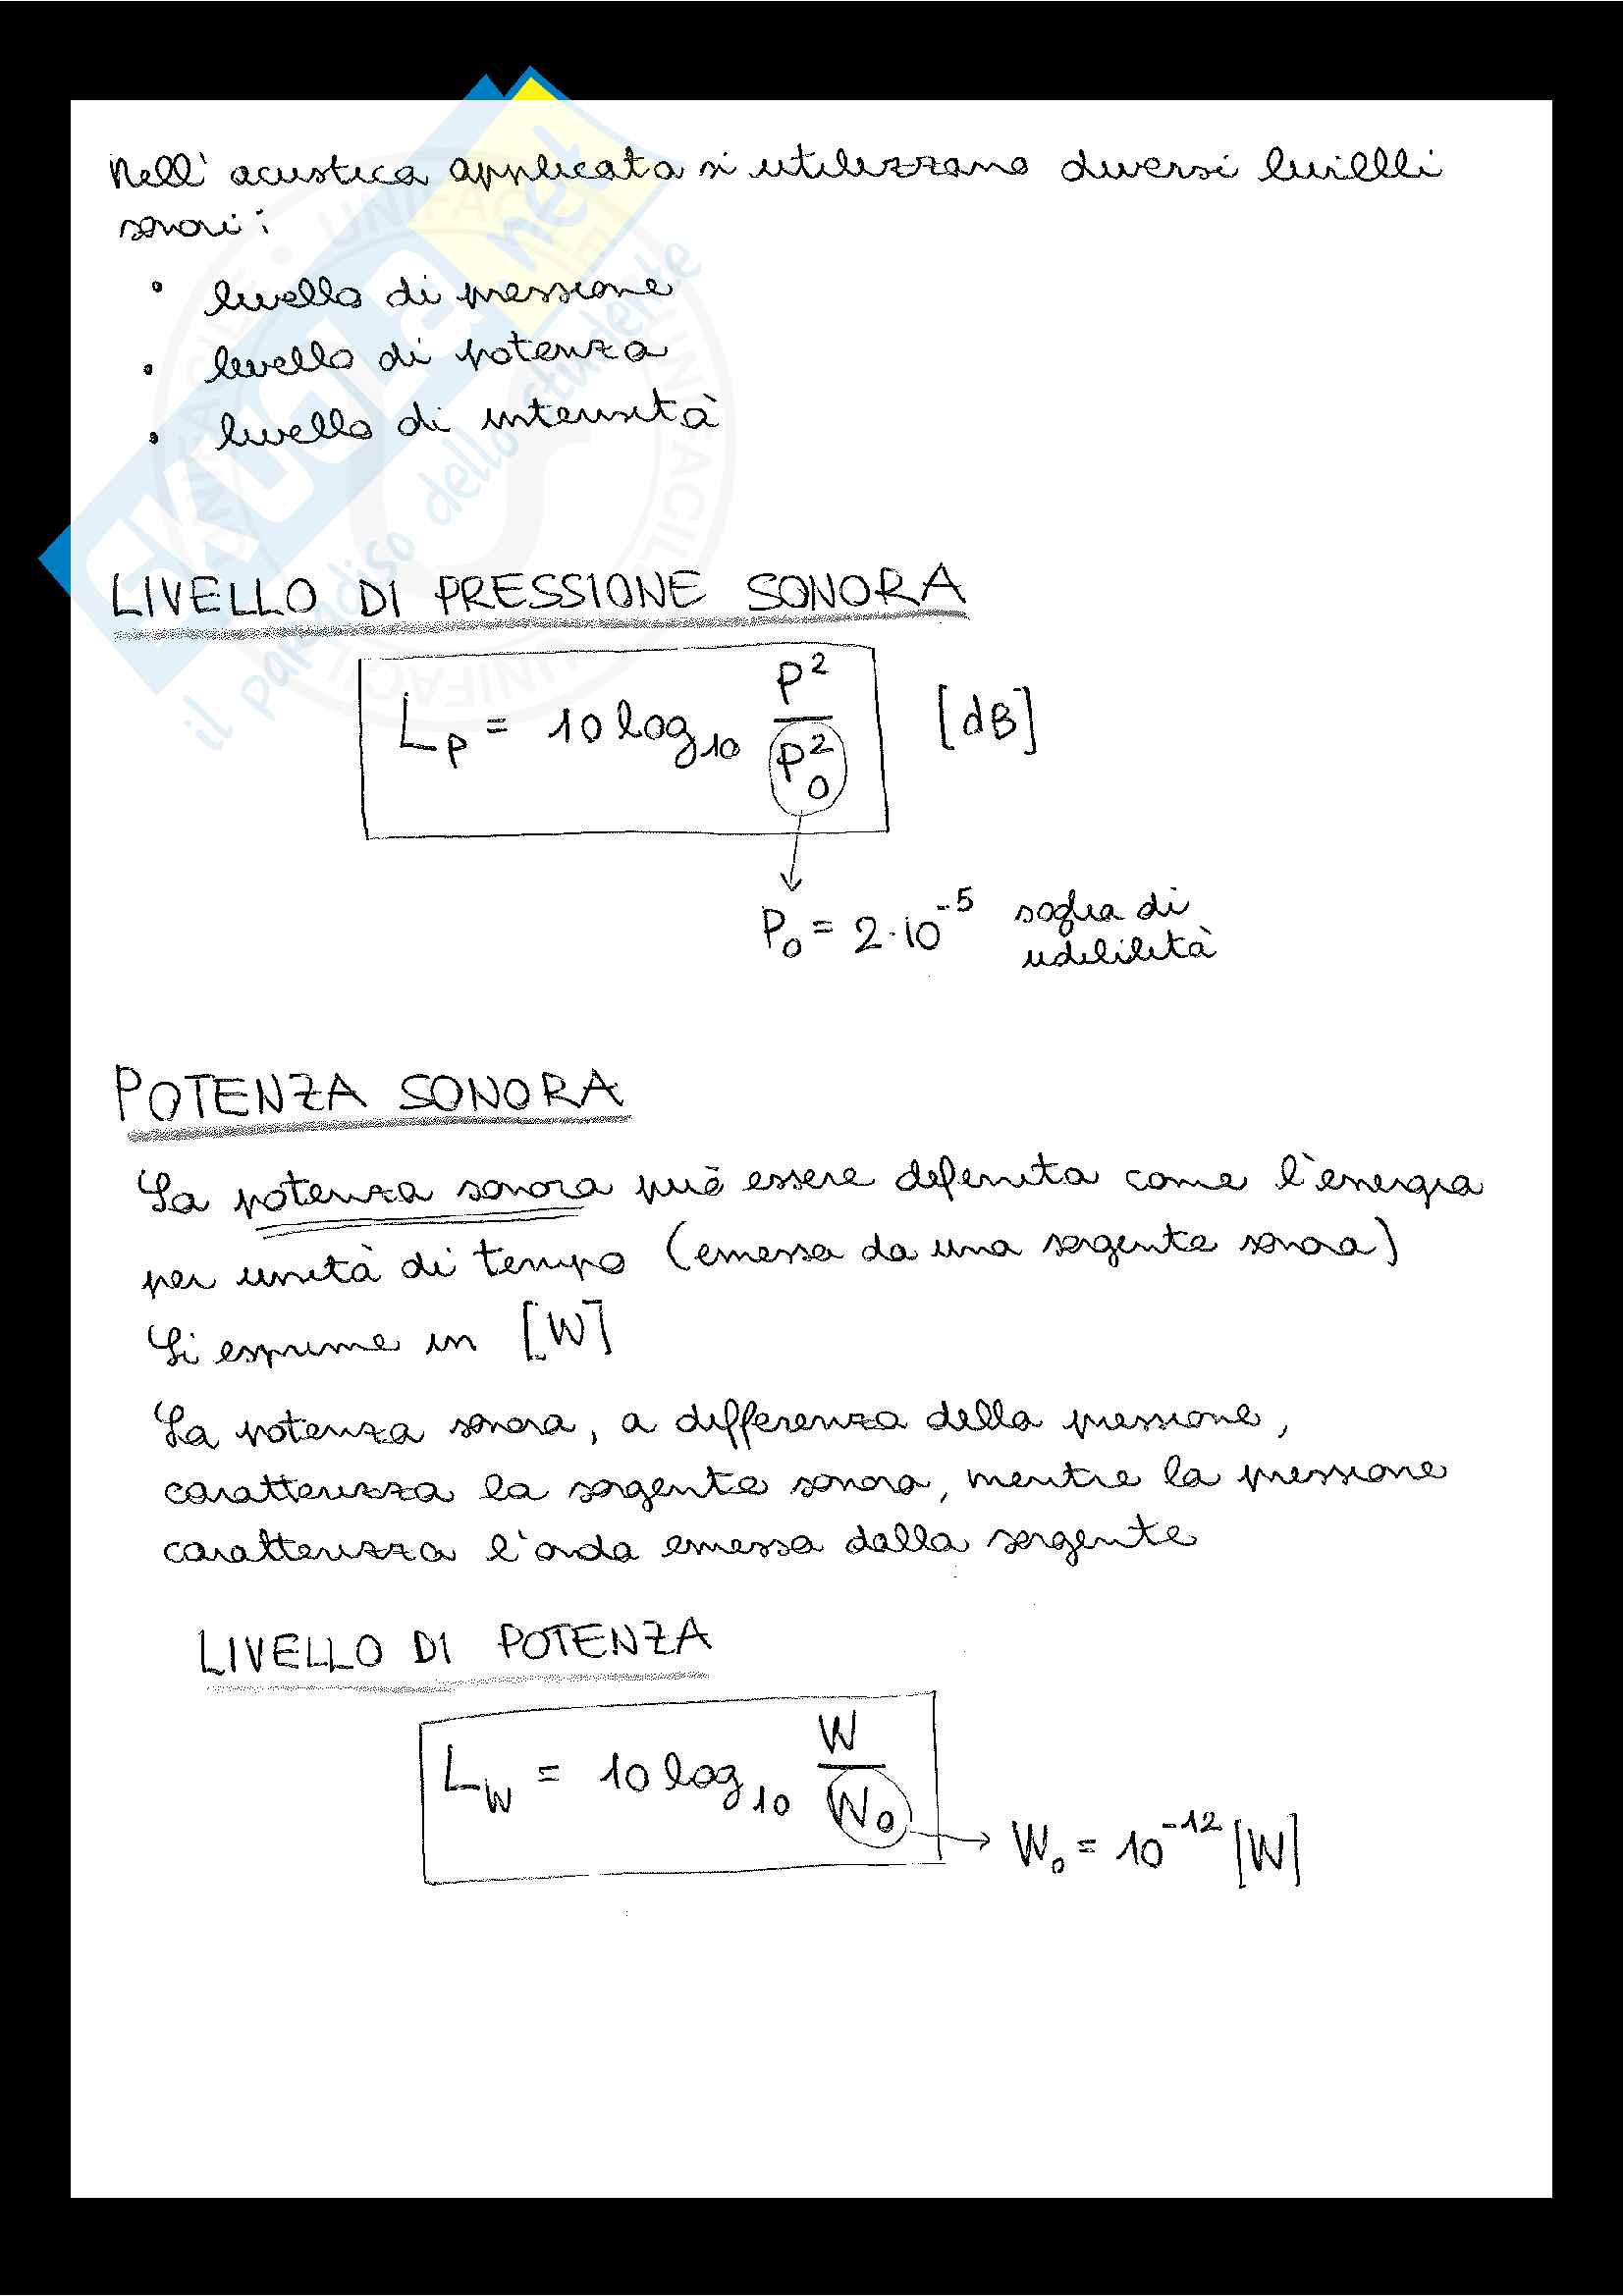 Nell' acustica applicata si utilizzano diversi livelli
sonori:
• livello di pressione
• livello di potenza
• livello di intensità
LIVELLO DI PRESSIONE SONORA
Lp = 10 log₁₀ P²/P₀² [dB]
P₀ = 2·10⁻⁵ soglia di
udibilità
POTENZA SONORA
La potenza sonora può essere definita come l'energia
per unità di tempo (emessa da una sorgente sonora)
Si esprime in [W]
La potenza sonora, a differenza della pressione,
caratterizza la sorgente sonora, mentre la pressione
caratterizza l'onda emessa dalla sorgente
LIVELLO DI POTENZA
L_W = 10 log₁₀ W/W₀
W₀ = 10⁻¹² [W]
SKUOLA.net
il paradiso dello studente